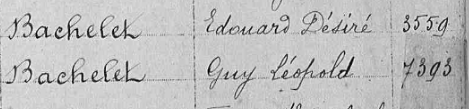 Bachelet Edouard Désiré 3559
Bachelet Guy Léopold 7393